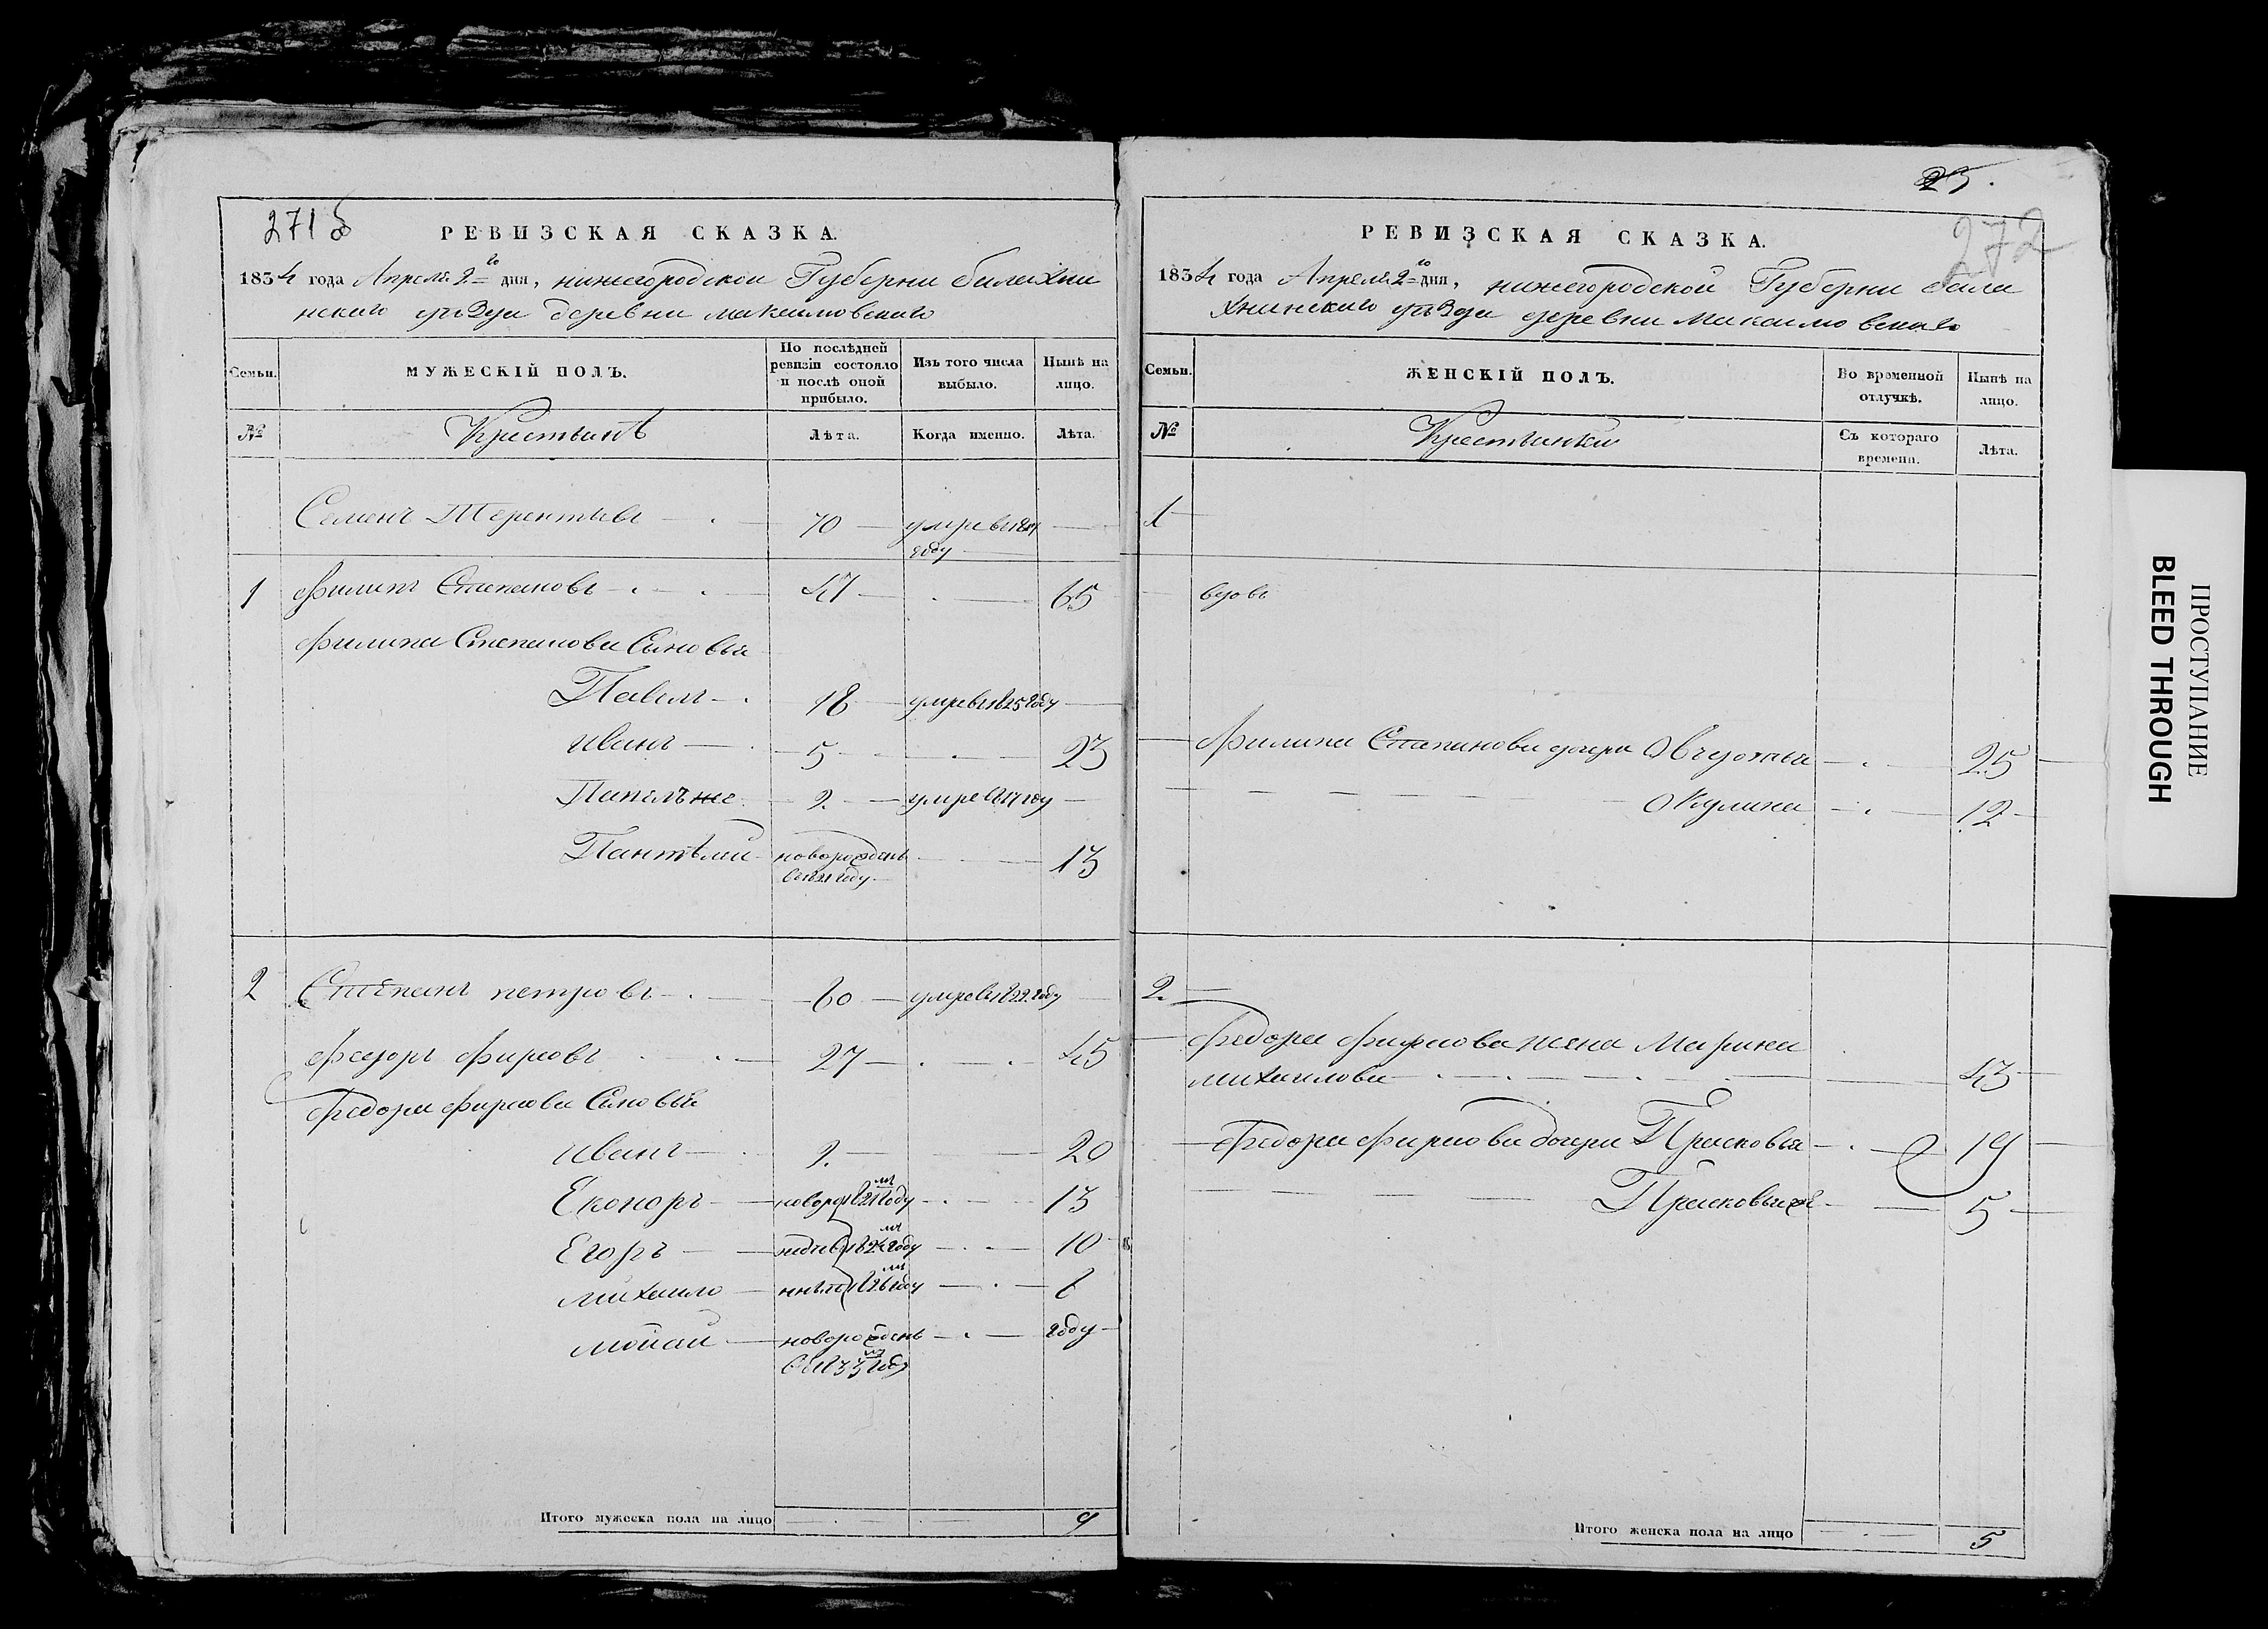 271 об
РЕВИЗСКАЯ СКАЗКА.
1834 года Апреля 2го дня, нижегородской Губерни балахни
нскаго уѣзда деревни максимовскаго
Семьи.
МУЖЕСКІЙ ПОЛЪ.
По послѣдней ревизіи состояло и послѣ оной прибыло.
Изъ того числа выбыло.
Нынѣ на лицо.
№
Крестьянѣ
Лѣта.
Когда именно.
Лѣта.
Семенъ Терентьевъ 70 умре въ
году
1 Филипъ Степановъ 47 65
Филипа Степанова Сыновья
Павелъ 18 умре въ 1825 году
иванъ 5 23
2 умре 1817 году
Пантѣлей новорожденъ 13
въ 1821 году
2 Степанъ петровъ 60 умре въ 1822 году
федоръ фирсовъ 27 45
Федора фирсова Сыновья
иванъ 2 20
новоро 1821 году 13
Егоръ 1824 году 10
михаило 1826 году 8
новорожденъ году
въ 1833 году
Итого мужеска пола на лицо 9
25.
272
РЕВИЗСКАЯ СКАЗКА.
1834 года Апреля 2го дня, нижегородской Губерни бала
хнинскаго уѣзда деревни Максимовскаго
Семьи.
ЖЕНСКІЙ ПОЛЪ.
Во временной отлучкѣ.
Нынѣ на лицо.
№
Крестьянки
Съ котораго времена.
Лѣта.
1
вдовъ
Филипа Степанова дочери Овдотья 25
Окулина 12
2
Федора фирсова жена Марина
михаилова 43
Федора фирсова дочери Прасковья 19
Прасковья 5
Итого женска пола на лицо 5
ПРОСТУПАНИЕ
BLEED THROUGH